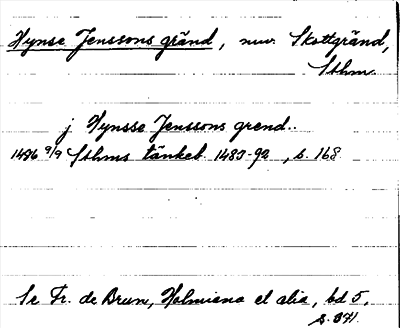 Hynse Jenssons gränd, nuv. Skottgränd,
Sthm.
j Hynsse Jenssons grend..
1486 9/9 Sthms tänkeb. 1483-92, s. 168
Se Fr. de Brun, Holmiana et alia, bd 5,
s. 391.